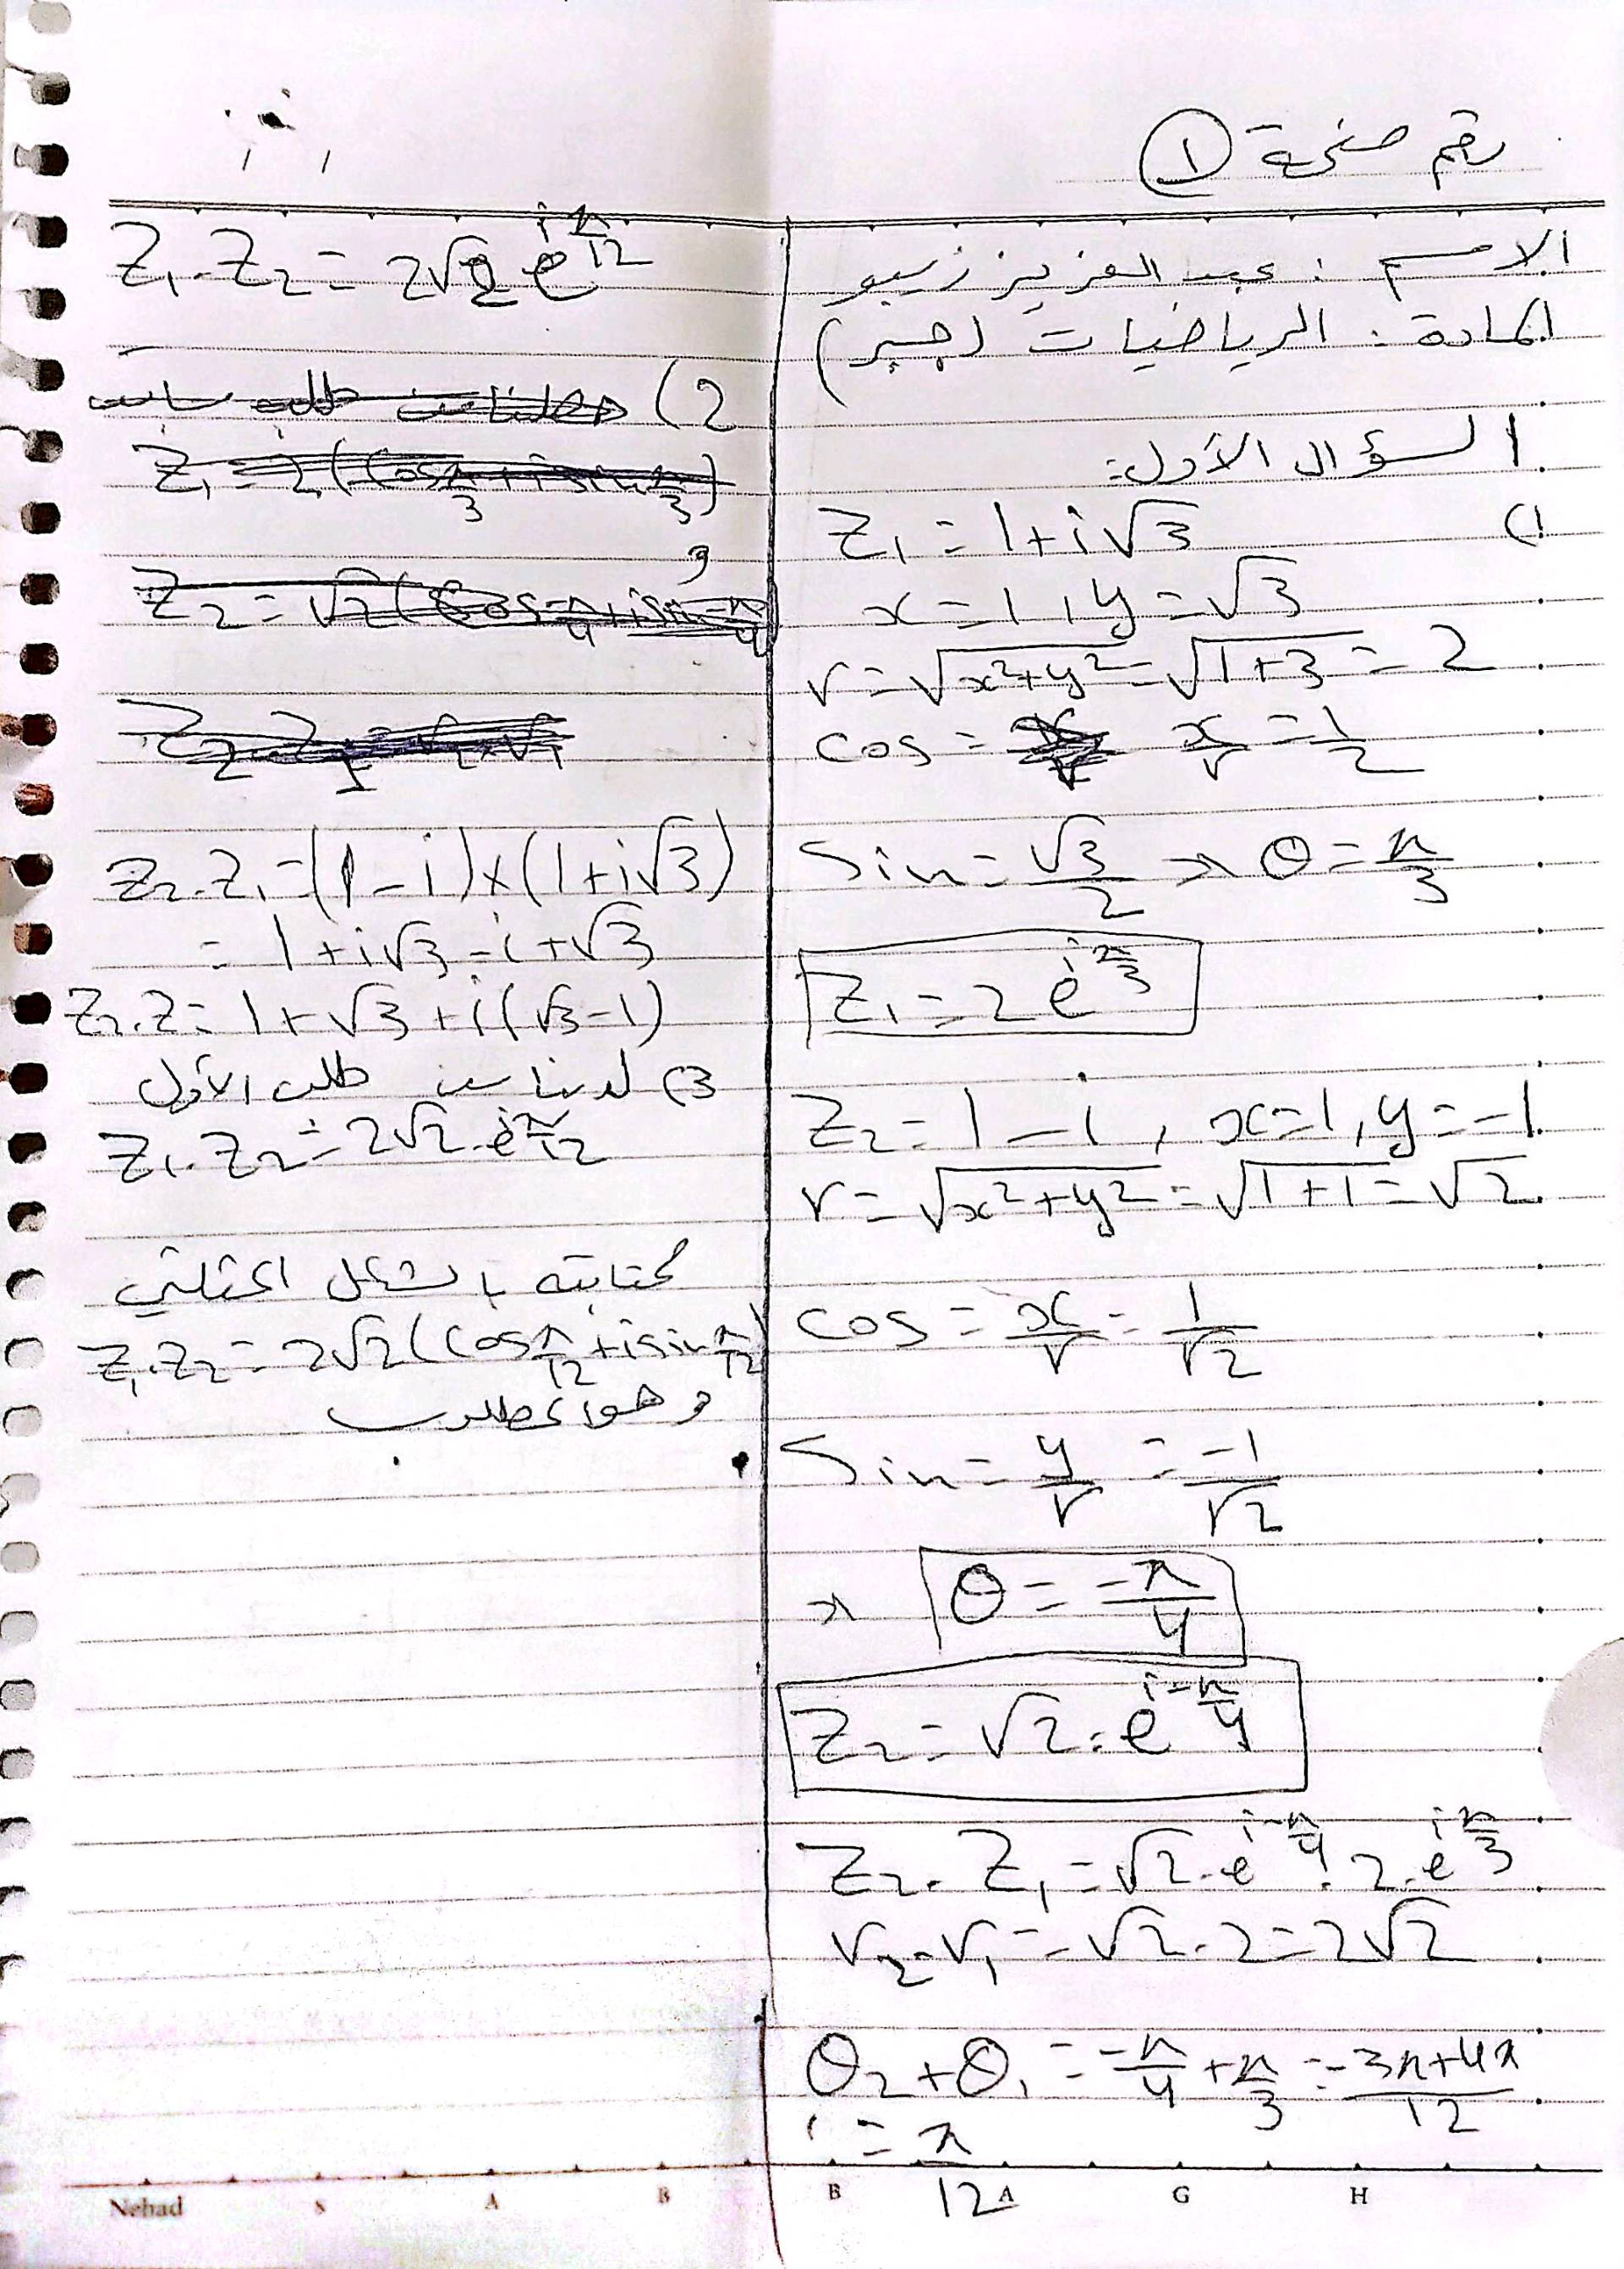 رقم صفحة ①
الاسم : عبد العزيز زيبو
المادة : الرياضيات (جبر)
السؤال الأول:
1) Z₁ = 1+i√3
x=1, y=√3
r=√(x²+y²)=√(1+3)=2
cos = x/r = 1/2
Sin = √3/2 ⇒ θ=π/3
Z₁=2e^(iπ/3)
Z₂=1-i, x=1, y=-1
r=√(x²+y²)=√(1+1)=√2
cos = x/r = 1/√2
Sin = y/r = -1/√2
⇒ θ = -π/4
Z₂=√2.e^(i-π/4)
Z₂.Z₁=√2.e^(i-π/4).2.e^(iπ/3)
r₂.r₁=√2.2=2√2
θ₂+θ₁=-π/4+π/3=(-3π+4π)/12
= π/12
Z₁.Z₂=2√2 e^(iπ/12)
2)
Z₂.Z₁=(1-i)×(1+i√3)
= 1+i√3-i+√3
Z₂.Z=1+√3+i(√3-1)
3) لدينا من طلب الأول
Z₁.Z₂=2√2.e^(iπ/12)
كتابته بالشكل المثلثي
Z₁.Z₂=2√2(cos π/12+i sin π/12)
وهو المطلوب
Nehad S A B B A G H